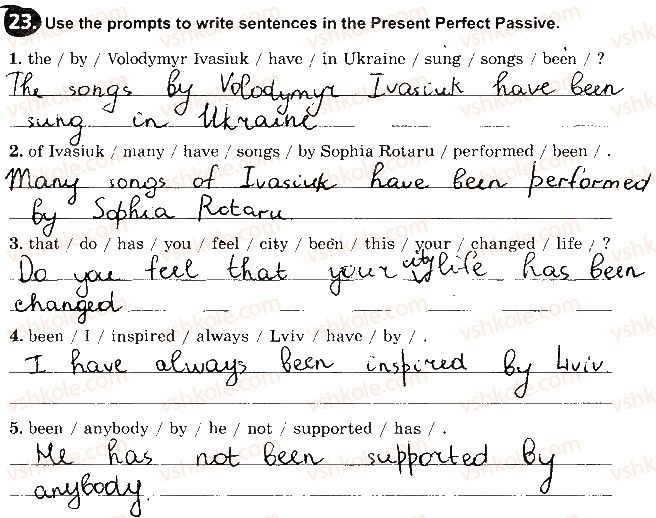 23. Use the prompts to write sentences in the Present Perfect Passive.
1. the / by / Volodymyr Ivasiuk / have / in Ukraine / sung / songs / been / ?
The songs by Volodymyr Ivasiuk have been
sung in Ukraine
2. of Ivasiuk / many / have / songs / by Sophia Rotaru / performed / been / .
Many songs of Ivasiuk have been performed
by Sophia Rotaru
3. that / do / has / you / feel / city / been / this / your / changed / life / ?
Do you feel that your city life has been
changed
4. been / I / inspired / always / Lviv / have / by / .
I have always been inspired by Lviv
5. been / anybody / by / he / not / supported / has / .
He has not been supported by
anybody.